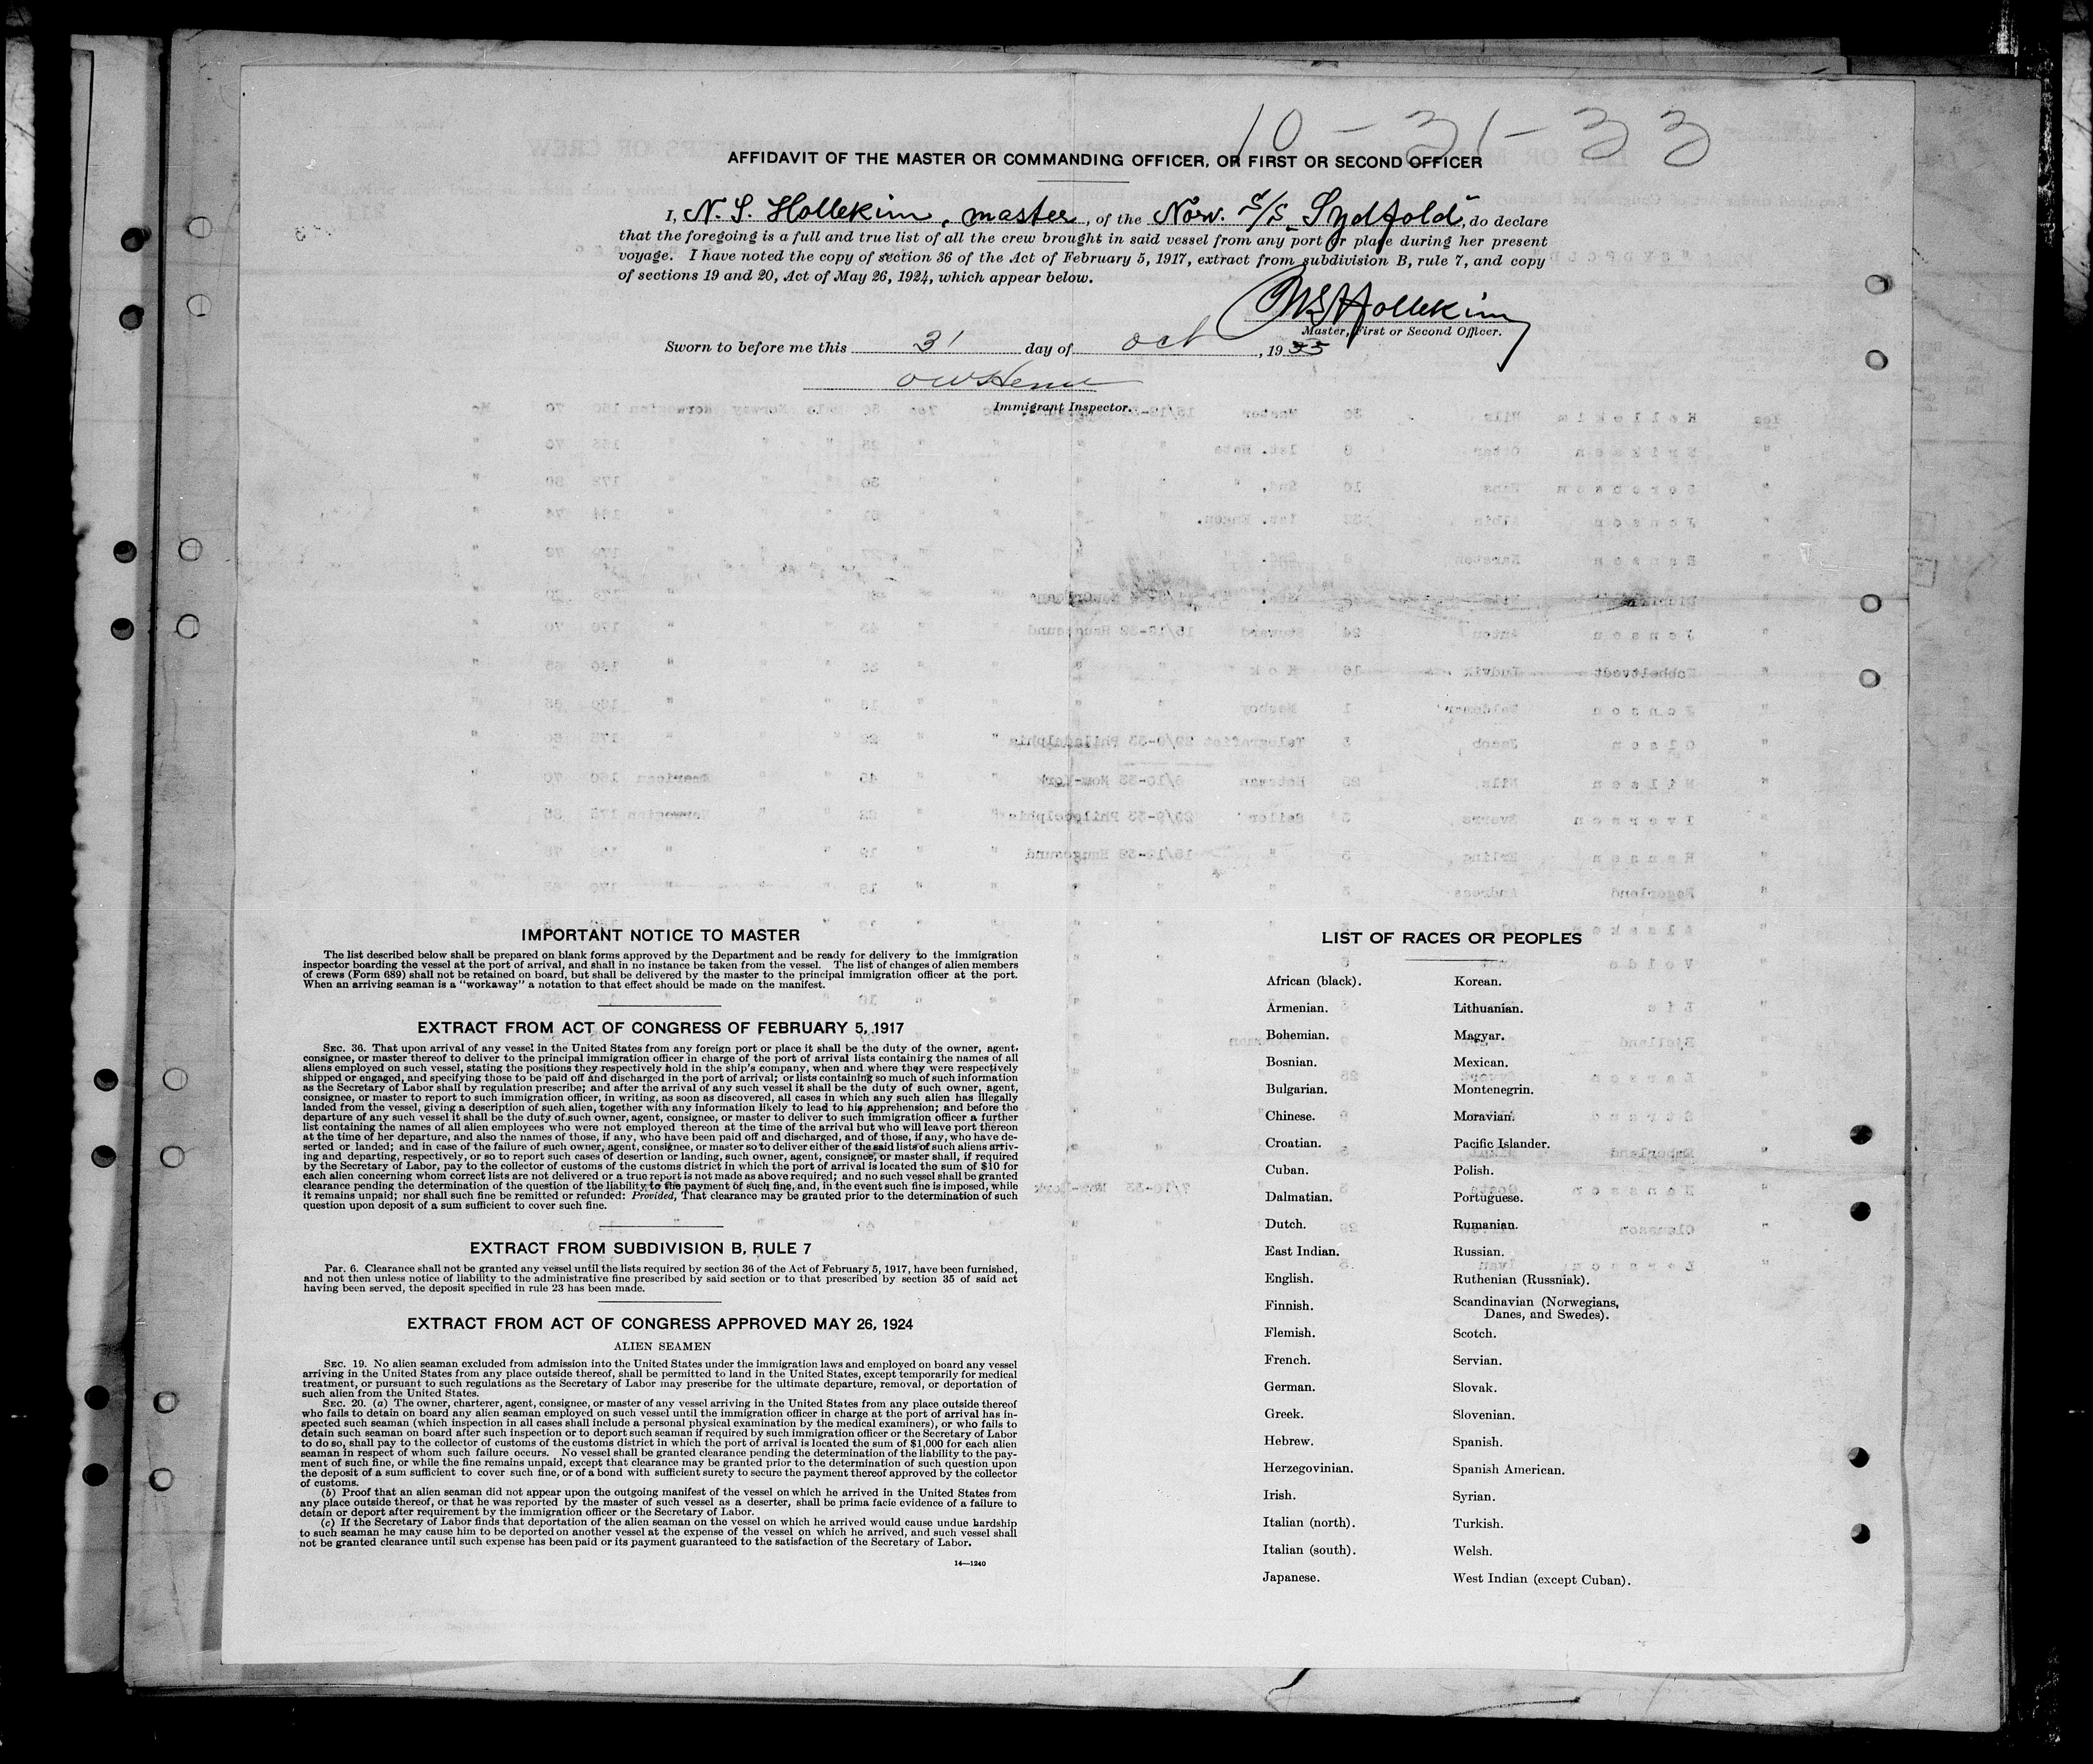 10-31-33
AFFIDAVIT OF THE MASTER OR COMMANDING OFFICER, OR FIRST OR SECOND OFFICER
I, N. S. Hollekim, master, of the Norw. S/S "Sydfold", do declare
that the foregoing is a full and true list of all the crew brought in said vessel from any port or place during her present
voyage. I have noted the copy of section 36 of the Act of February 5, 1917, extract from subdivision B, rule 7, and copy
of sections 19 and 20, Act of May 26, 1924, which appear below.
NS Hollekim
Master, First or Second Officer.
Sworn to before me this 31 day of Oct, 1933
Immigrant Inspector.
IMPORTANT NOTICE TO MASTER
The list described below shall be prepared on blank forms approved by the Department and be ready for delivery to the immigration
inspector boarding the vessel at the port of arrival, and shall in no instance be taken from the vessel. The list of changes of alien members
of crews (Form 689) shall not be retained on board, but shall be delivered by the master to the principal immigration officer at the port.
When an arriving seaman is a "workaway" a notation to that effect should be made on the manifest.
EXTRACT FROM ACT OF CONGRESS OF FEBRUARY 5, 1917
SEC. 36. That upon arrival of any vessel in the United States from any foreign port or place it shall be the duty of the owner, agent,
consignee, or master thereof to deliver to the principal immigration officer in charge of the port of arrival lists containing the names of all
aliens employed on such vessel, stating the positions they respectively hold in the ship's company, when and where they were respectively
shipped or engaged, and specifying those to be paid off and discharged in the port of arrival; or lists containing so much of such information
as the Secretary of Labor shall by regulation prescribe; and after the arrival of any such vessel it shall be the duty of such owner, agent,
consignee, or master to report to such immigration officer, in writing, as soon as discovered, all cases in which any such alien has illegally
landed from the vessel, giving a description of such alien, together with any information likely to lead to his apprehension; and before the
departure of any such vessel it shall be the duty of such owner, agent, consignee, or master to deliver to such immigration officer a further
list containing the names of all alien employees who were not employed thereon at the time of the arrival but who will leave port thereon
at the time of her departure, and also the names of those, if any, who have been paid off and discharged, and of those, if any, who have de-
serted or landed; and in case of the failure of such owner, agent, consignee, or master so to deliver either of the said lists of such aliens arriv-
ing and departing, respectively, or so to report such cases of desertion or landing, such owner, agent, consignee, or master shall, if required
by the Secretary of Labor, pay to the collector of customs of the customs district in which the port of arrival is located the sum of $10 for
each alien concerning whom correct lists are not delivered or a true report is not made as above required; and no such vessel shall be granted
clearance pending the determination of the question of the liability to the payment of such fine, and, in the event such fine is imposed, while
it remains unpaid; nor shall such fine be remitted or refunded: Provided, That clearance may be granted prior to the determination of such
question upon deposit of a sum sufficient to cover such fine.
EXTRACT FROM SUBDIVISION B, RULE 7
PAR. 6. Clearance shall not be granted any vessel until the lists required by section 36 of the Act of February 5, 1917, have been furnished,
and not then unless notice of liability to the administrative fine prescribed by said section or to that prescribed by section 35 of said act
having been served, the deposit specified in rule 23 has been made.
EXTRACT FROM ACT OF CONGRESS APPROVED MAY 26, 1924
ALIEN SEAMEN
SEC. 19. No alien seaman excluded from admission into the United States under the immigration laws and employed on board any vessel
arriving in the United States from any place outside thereof, shall be permitted to land in the United States, except temporarily for medical
treatment, or pursuant to such regulations as the Secretary of Labor may prescribe for the ultimate departure, removal, or deportation of
such alien from the United States.
SEC. 20. (a) The owner, charterer, agent, consignee, or master of any vessel arriving in the United States from any place outside thereof
who fails to detain on board any alien seaman employed on such vessel until the immigration officer in charge at the port of arrival has in-
spected such seaman (which inspection in all cases shall include a personal physical examination by the medical examiners), or who fails to
detain such seaman on board after such inspection or to deport such seaman if required by such immigration officer or the Secretary of Labor
to do so, shall pay to the collector of customs of the customs district in which the port of arrival is located the sum of $1,000 for each alien
seaman in respect of whom such failure occurs. No vessel shall be granted clearance pending the determination of the liability to the pay-
ment of such fine, or while the fine remains unpaid, except that clearance may be granted prior to the determination of such question upon
the deposit of a sum sufficient to cover such fine, or of a bond with sufficient surety to secure the payment thereof approved by the collector
of customs.
(b) Proof that an alien seaman did not appear upon the outgoing manifest of the vessel on which he arrived in the United States from
any place outside thereof, or that he was reported by the master of such vessel as a deserter, shall be prima facie evidence of a failure to
detain or deport after requirement by the immigration officer or the Secretary of Labor.
(c) If the Secretary of Labor finds that deportation of the alien seaman on the vessel on which he arrived would cause undue hardship
to such seaman he may cause him to be deported on another vessel at the expense of the vessel on which he arrived, and such vessel shall
not be granted clearance until such expense has been paid or its payment guaranteed to the satisfaction of the Secretary of Labor.
14—1240
LIST OF RACES OR PEOPLES
African (black).
Armenian.
Bohemian.
Bosnian.
Bulgarian.
Chinese.
Croatian.
Cuban.
Dalmatian.
Dutch.
East Indian.
English.
Finnish.
Flemish.
French.
German.
Greek.
Hebrew.
Herzegovinian.
Irish.
Italian (north).
Italian (south).
Japanese.
Korean.
Lithuanian.
Magyar.
Mexican.
Montenegrin.
Moravian.
Pacific Islander.
Polish.
Portuguese.
Rumanian.
Russian.
Ruthenian (Russniak).
Scandinavian (Norwegians,
Danes, and Swedes).
Scotch.
Servian.
Slovak.
Slovenian.
Spanish.
Spanish American.
Syrian.
Turkish.
Welsh.
West Indian (except Cuban).